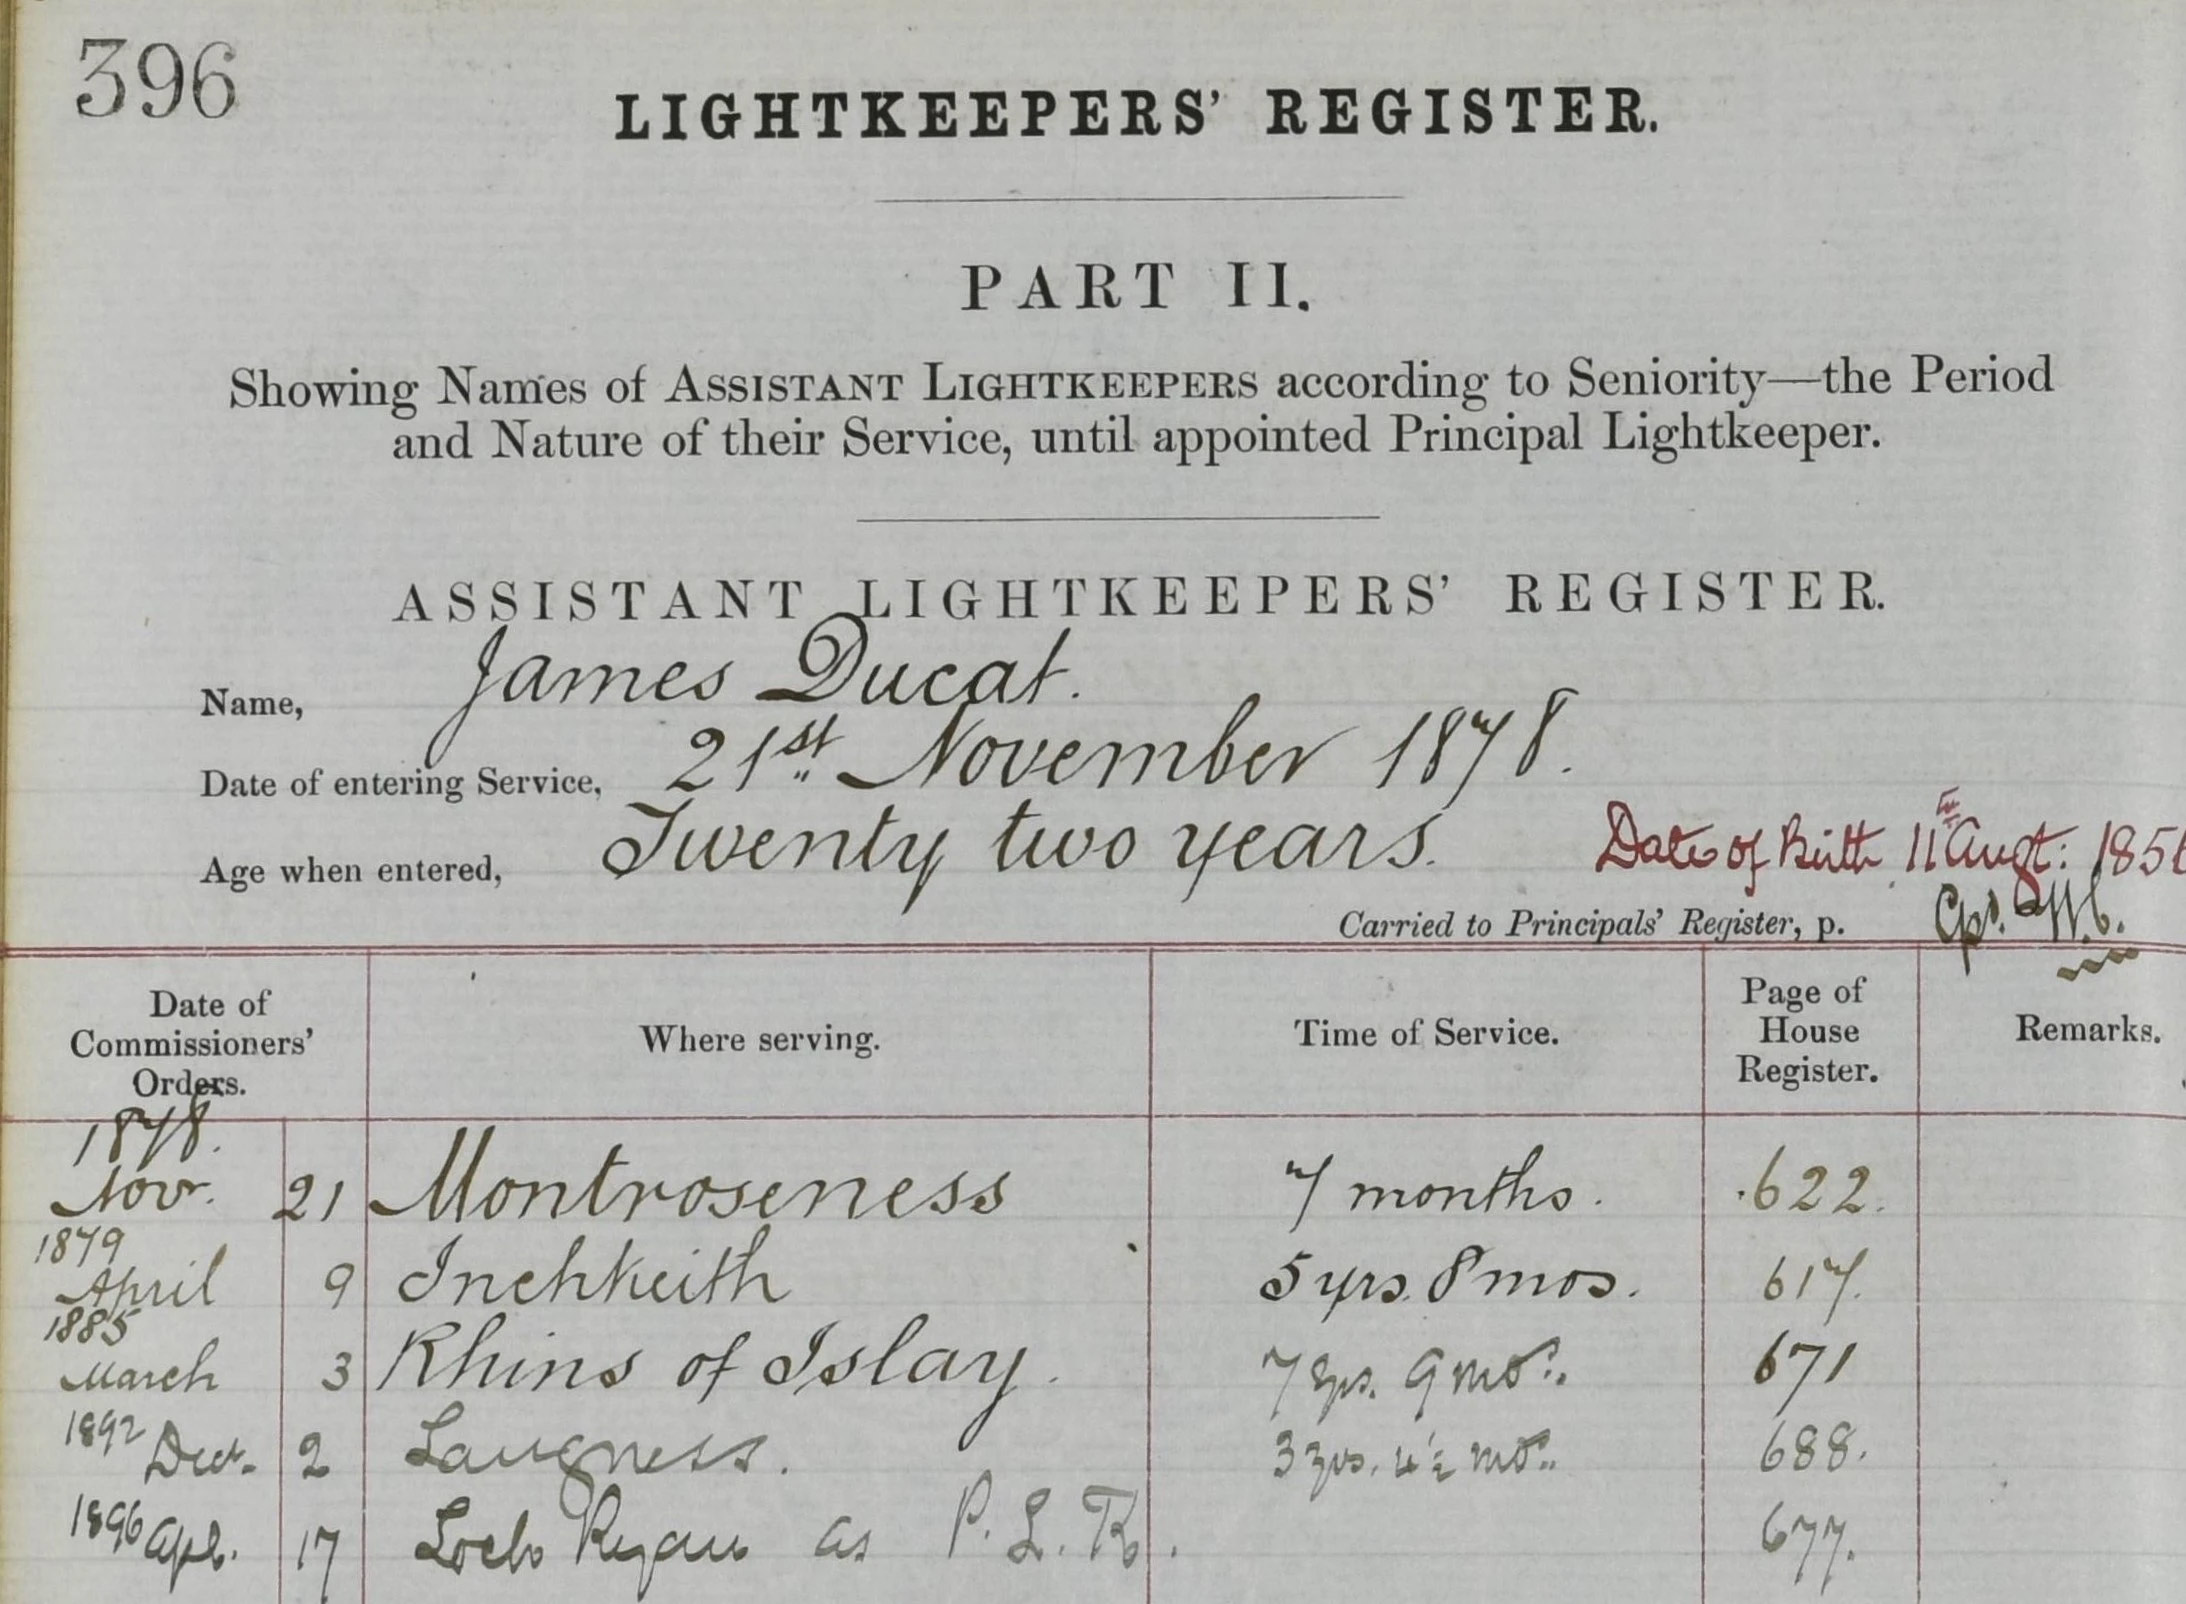 396
LIGHTKEEPERS' REGISTER.
PART II.
Showing Names of ASSISTANT LIGHTKEEPERS according to Seniority—the Period
and Nature of their Service, until appointed Principal Lightkeeper.
ASSISTANT LIGHTKEEPERS' REGISTER.
Name, James Ducat.
Date of entering Service, 21st November 1878.
Age when entered, Twenty two years. Date of Birth 11th Augt: 1856
Carried to Principals' Register, p.
Date of Commissioners' Orders. Where serving. Time of Service. Page of House Register. Remarks.
1878.
Novr. 21 Montroseness 7 months. 622.
1879
April 9 Inchkeith 5 yrs. 8 mos. 617.
1885
March 3 Rhins of Islay. 7 yrs. 9 mos. 671
1892 Decr. 2 Langness. 3 yrs. 4½ mos. 688.
1896 Apl. 17 Loch Ryan as P. L. K. 677.